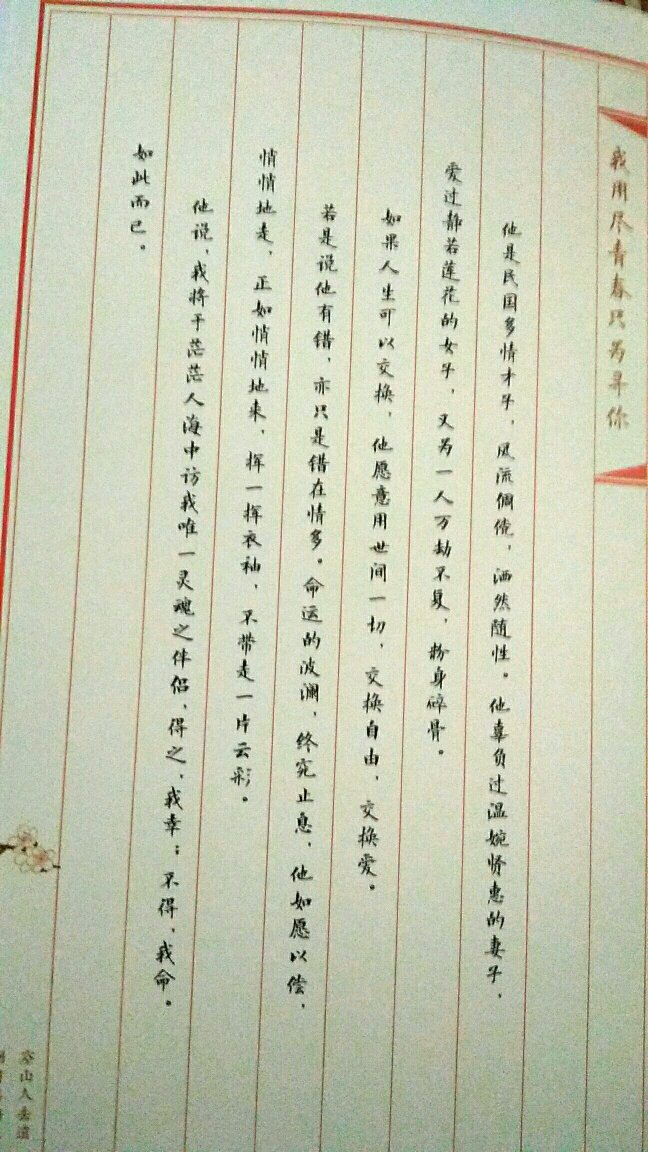 我用尽青春只为寻你
他是民国多情才子，风流倜傥，洒然随性。他辜负过温婉贤惠的妻子，
爱过静若莲花的女子，又为一人万劫不复，粉身碎骨。
如果人生可以交换，他愿意用世间一切，交换自由，交换爱。
若是说他有错，亦只是错在情多。命运的波澜，终究止息，他如愿以偿，
悄悄地走，正如悄悄地来，挥一挥衣袖，不带走一片云彩。
他说，我将于茫茫人海中访我唯一灵魂之伴侣，得之，我幸；不得，我命。
如此而已。